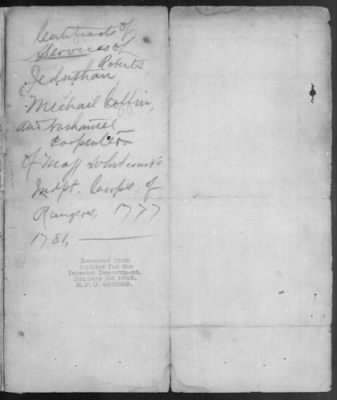 Certificate of
Services of
Roberts,
Jeduthan
Michael Coffin,
and Nathaniel
Carpenter
of Maj Whitcomb's
Indpt. Corps of
Rangers, 1777
1781,
Received from
Auditor for the
Interior Department,
January 1906.